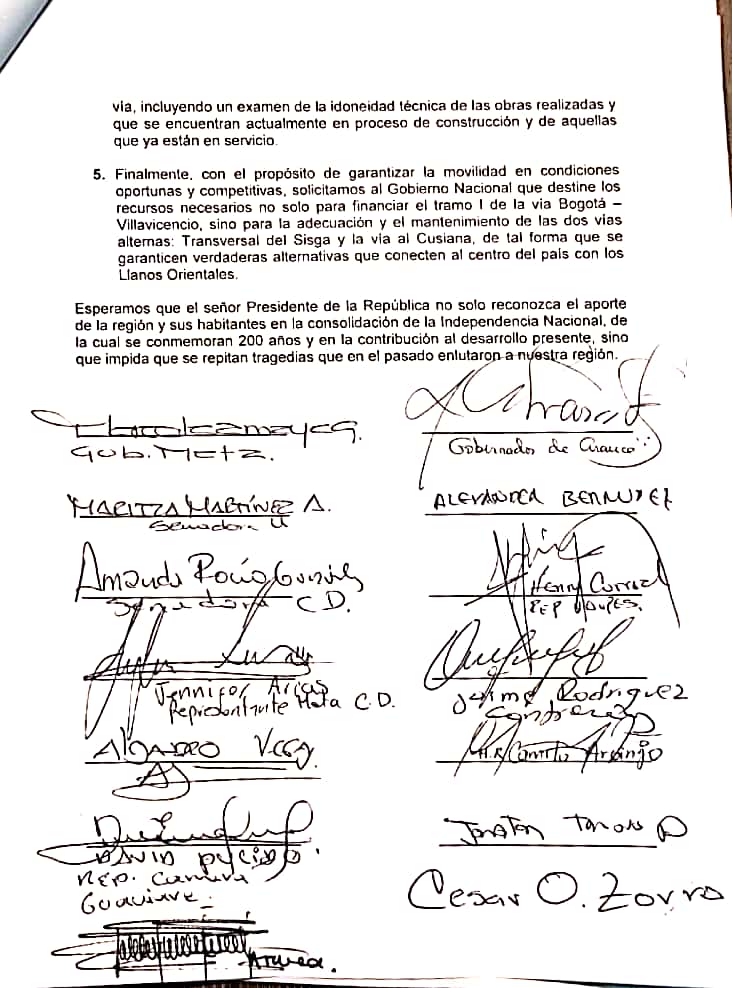 vía, incluyendo un examen de la idoneidad técnica de las obras realizadas y
que se encuentran actualmente en proceso de construcción y de aquellas
que ya están en servicio.
5. Finalmente, con el propósito de garantizar la movilidad en condiciones
oportunas y competitivas, solicitamos al Gobierno Nacional que destine los
recursos necesarios no solo para financiar el tramo I de la vía Bogotá –
Villavicencio, sino para la adecuación y el mantenimiento de las dos vías
alternas: Transversal del Sisga y la vía al Cusiana, de tal forma que se
garanticen verdaderas alternativas que conecten al centro del país con los
Llanos Orientales.
Esperamos que el señor Presidente de la República no solo reconozca el aporte
de la región y sus habitantes en la consolidación de la Independencia Nacional, de
la cual se conmemoran 200 años y en la contribución al desarrollo presente, sino
que impida que se repitan tragedias que en el pasado enlutaron a nuestra región.
Gob. Meta.
Gobernador de Arauca
MARITZA MARTÍNEZ A.
Senadora U
ALEXANDRA BERMUDEZ
Amanda Rocío González
Senadora C D.
Henry Correal
REP VAUPES.
Jennifer Arias
Representante Meta C.D.
Jaime Rodriguez
Contreras
Alejandro Vega
H.R Camilo Arango
DAVID PULIDO
REP. Camara
Guaviare
Jonatan
Cesar O. Zorro
Arauca.